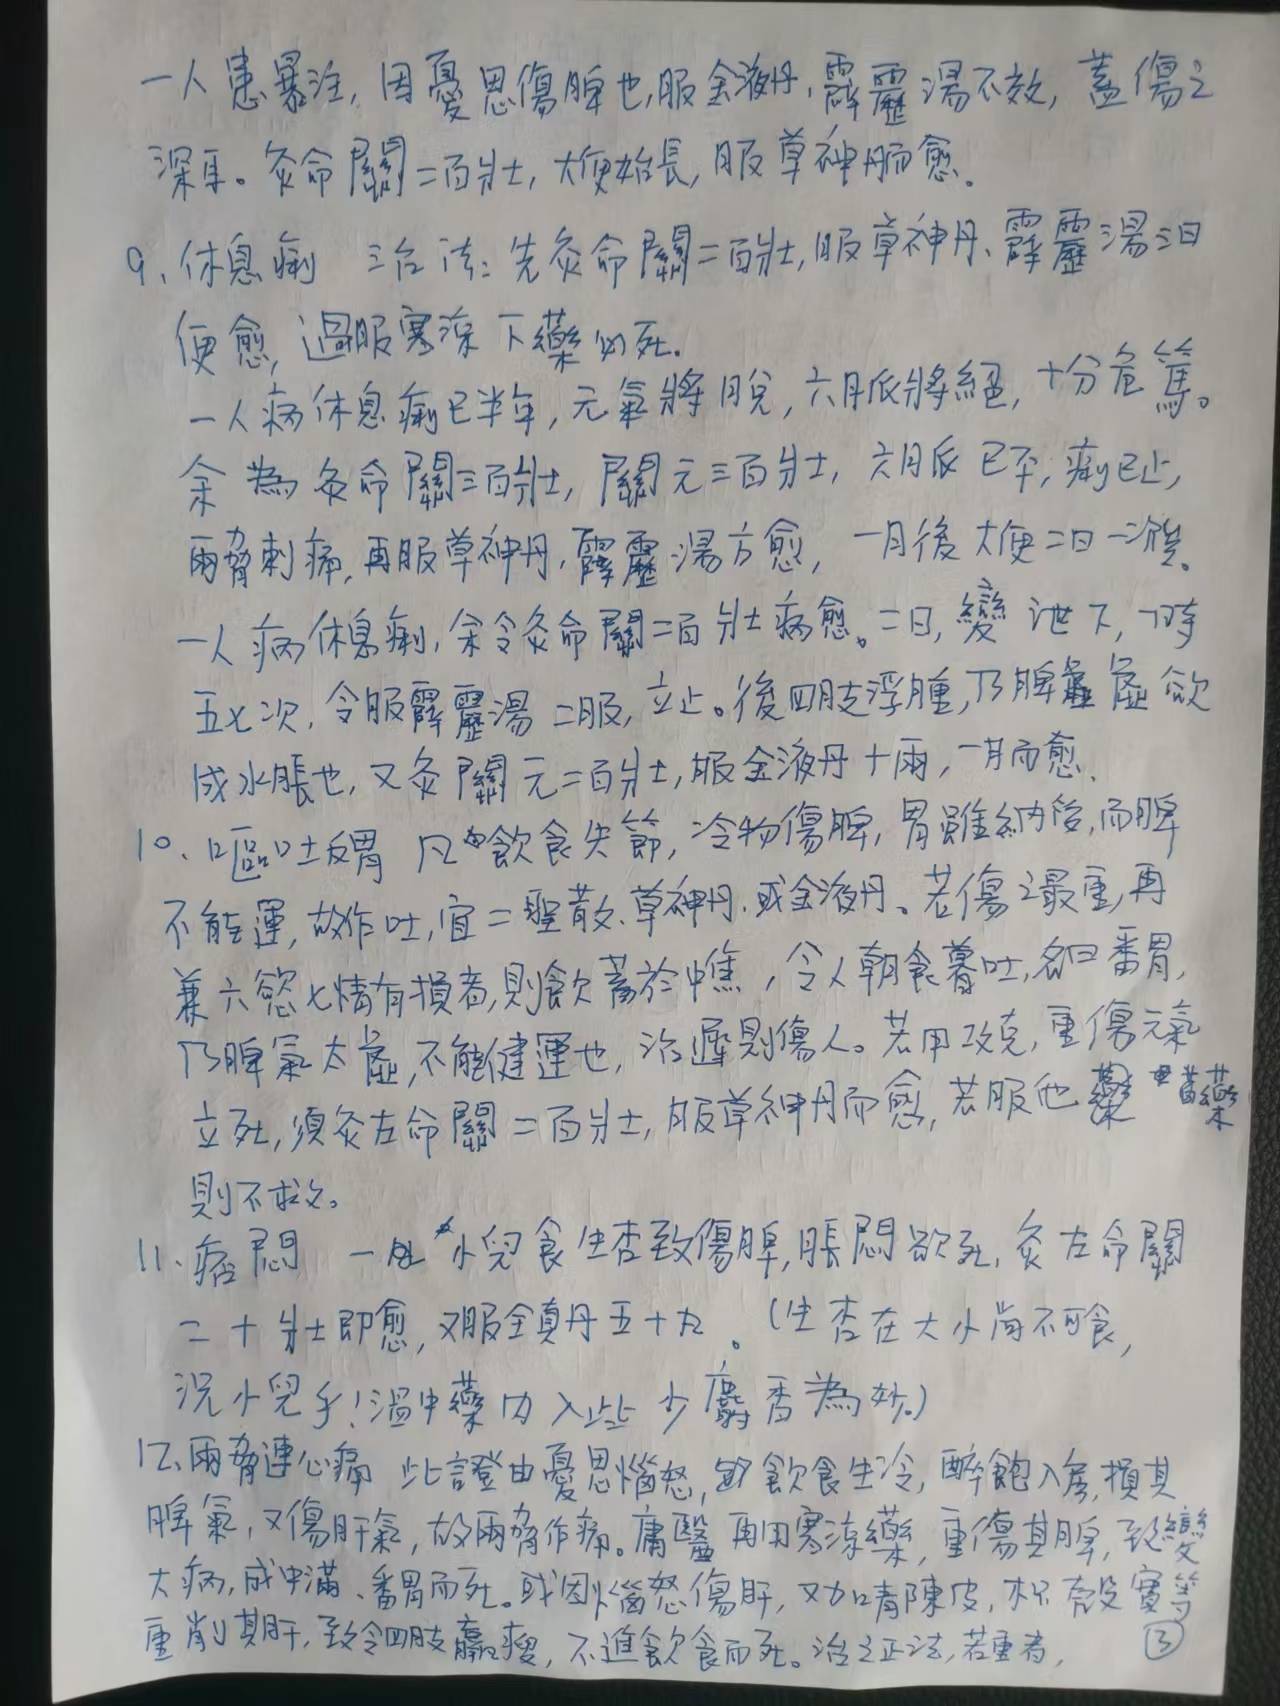 一人患暴注，因憂思傷脾也，服金液丹、霹靂湯不效，蓋傷之
深耳。灸命關二百壯，大便始長，服草神丹而愈。
9、休息痢 治法：先灸命關二百壯，服草神丹、霹靂湯三日
便愈，過服寒涼下藥必死。
一人病休息痢已半年，元氣將脫，六脈將絕，十分危篤。
余為灸命關三百壯，關元三百壯，六脈已平，痢已止，
兩脅刺痛，再服草神丹，霹靂湯方愈，一月後大便二日一次矣。
一人病休息痢，余令灸命關二百壯病愈。二日，變泄下，一時
五七次，令服霹靂湯二服，立止。後四肢浮腫，乃脾虛欲
成水脹也，又灸關元二百壯，服金液丹十兩，一月而愈。
10、嘔吐反胃 凡飲食失節，冷物傷脾，胃雖納後，而脾
不能運，故作吐，宜二聖散、草神丹、或金液丹。若傷之最重，再
兼六慾七情有損者，則飲蓄於中焦，令人朝食暮吐，名曰番胃，
乃脾氣太虛，不能健運也，治遲則傷人。若用攻克，重傷元氣
立死，須灸左命關二百壯，服草神丹而愈，若服他藥
則不救。
11、痞悶 一小兒食生杏致傷脾，脹悶欲死，灸左命關
二十壯即愈，又服全真丹五十丸。（生杏在大小尚不可食，
況小兒乎！溫中藥內入些少麝香為妙。）
12、兩脅連心痛 此證由憂思惱怒，飲食生冷，醉飽入房，損其
脾氣，又傷肝氣，故兩脅作痛。庸醫再用寒涼藥，重傷其脾，致變
大病，成中滿、番胃而死。或因惱怒傷肝，又加青陳皮，枳殼實等
重削其肝，致令四肢羸瘦，不進飲食而死。治之正法，若重者，
③